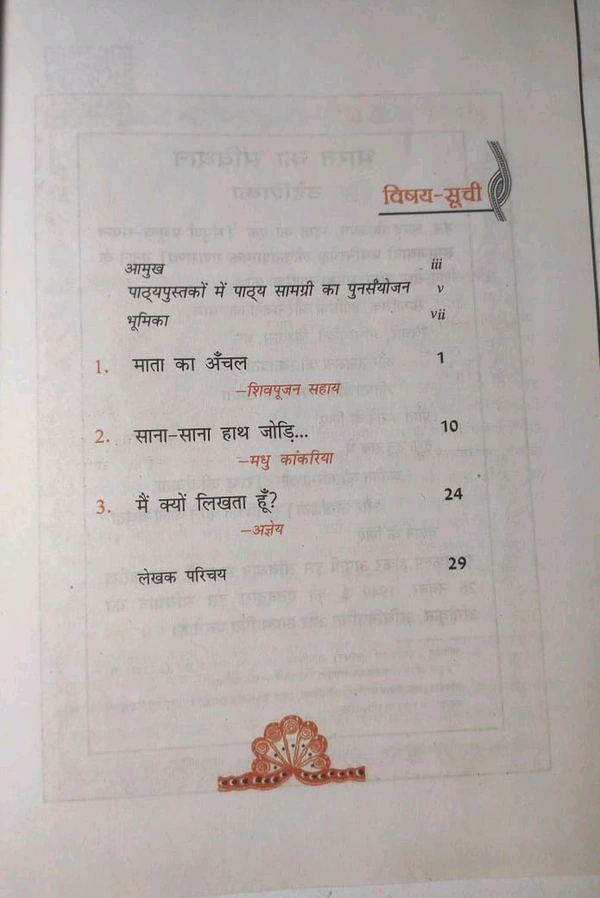 विषय-सूची
आमुख iii
पाठ्यपुस्तकों में पाठ्य सामग्री का पुनर्संयोजन v
भूमिका vii
1. माता का अँचल 1
–शिवपूजन सहाय
2. साना-साना हाथ जोड़ि... 10
–मधु कांकरिया
3. मैं क्यों लिखता हूँ? 24
–अज्ञेय
लेखक परिचय 29